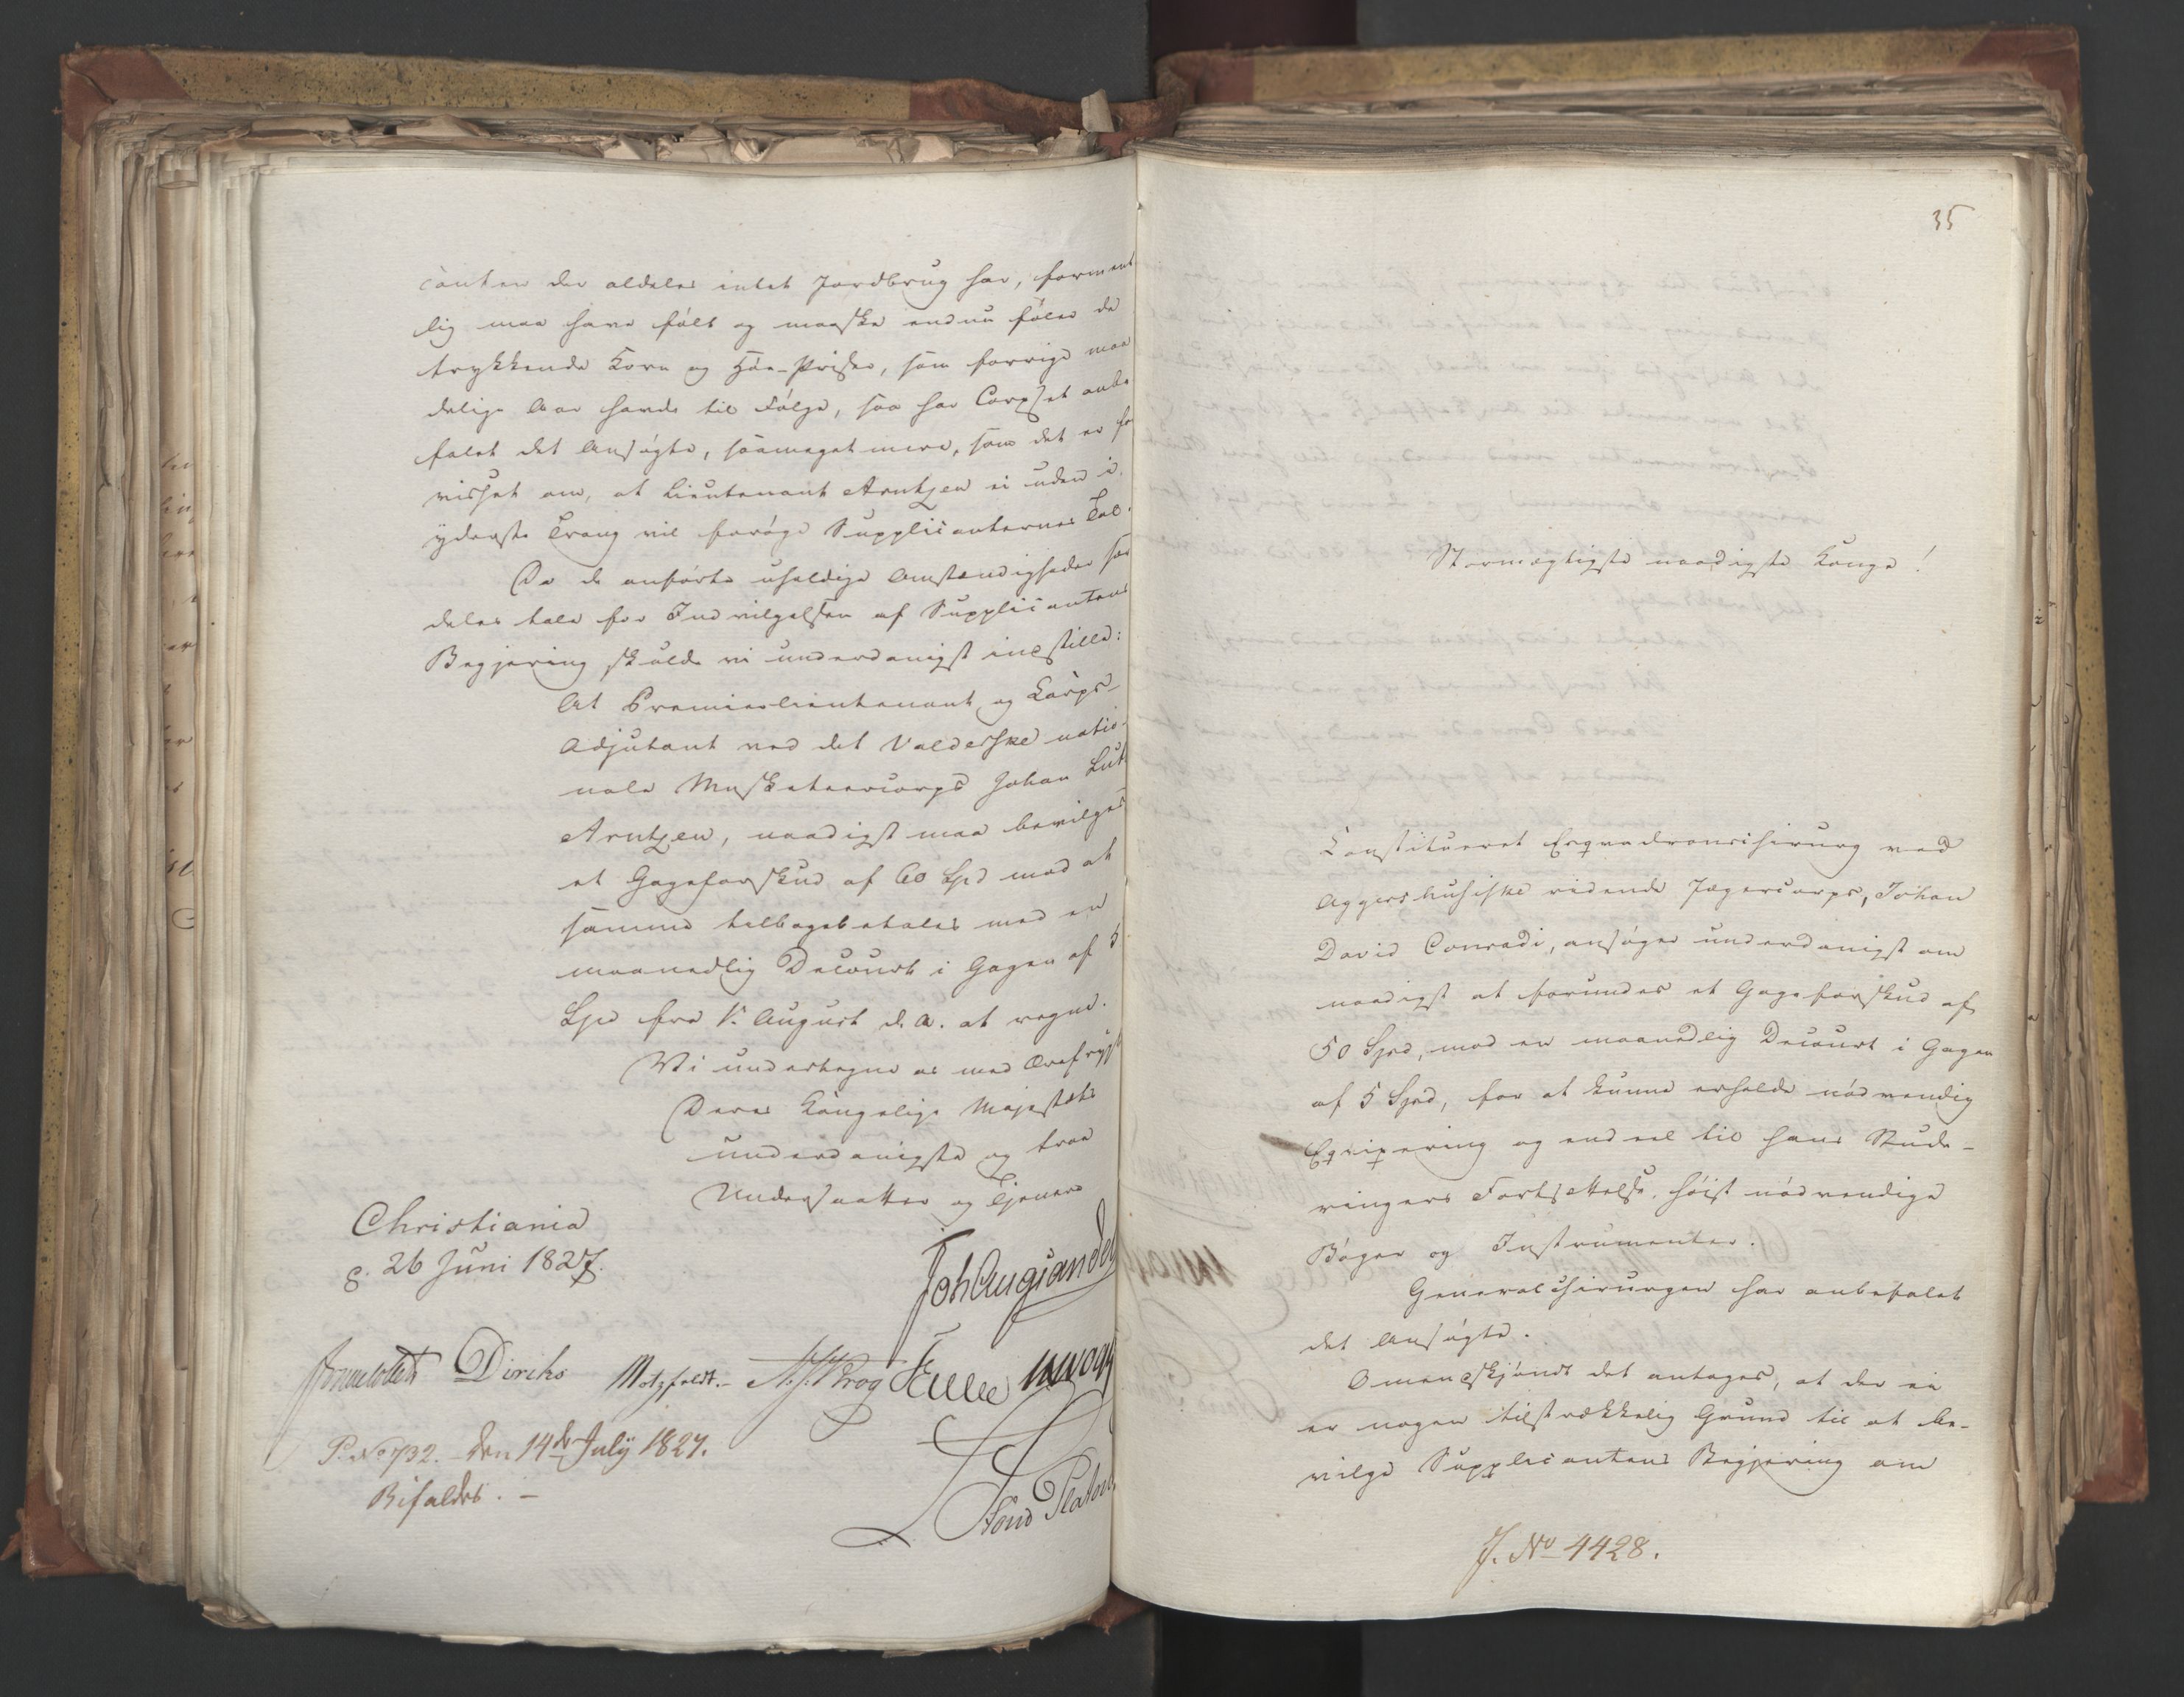 canten der aldeles intet Jordbrug har, forment
lig maa have følt og maaske endnu føler de
trykkende Korn og Høe-Priser, som forrige maa
delige Aar havde til Følge, saa har Corpset anbe
falet det Ansøgte, saameget mere, som det er for
visset om, at Lieutenant Arntzen ei uden i
yderste Trang vil forøge Supplicanternes Tal.
Da de anførte uheldige Omstændigheder saa
deles tale for Indvilgelsen af Supplicantens
Begjering skulde vi underdanigst indstille:
At Premierlieutenant og Corps-
Adjutant ved det Valderske natio-
nale Musketeercorps Johan Lut
Arntzen, naadigst maa bevilges
et Gageforskud af 60 Spd mod at
samme tilbagebetales med en
maanedlig Decourt i Gagen af 5
Spd fra 1. August d. A. at regne.
Vi undertegne os med Ærefrygt
Deres Kongelige Majestæts
underdanigste og troe
Undersaatter og Tjenere
Christiania
d. 26 Juni 1827.
Joh Aug Sandels
Diriks Motzfeldt.- Krog
Fond Platou
P. No 732. den 14de July 1827.
Bifaldes. -
35
Stormægtigste naadigste Konge!
Constitueret Esqvadronschirurg ved
Aggershusiske ridende Jægercorps, Johan
David Conradi, ansøger underdanigst om
naadigst at forundes et Gageforskud af
50 Spd, mod en maanedlig Decourt i Gagen
af 5 Spd, for at kunne erholde nødvendig
Eqvipering og endeel til hans Stude-
ringers Fortsættelse, høist nødvendige
Bøger og Instrumenter.
Generalchirurgen har anbefalet
det Ansøgte.
Omendskjøndt det antages, at der ei
er nogen tilstrækkelig Grund til at be-
vilge Supplicantens Begjering om
J. No 4428.